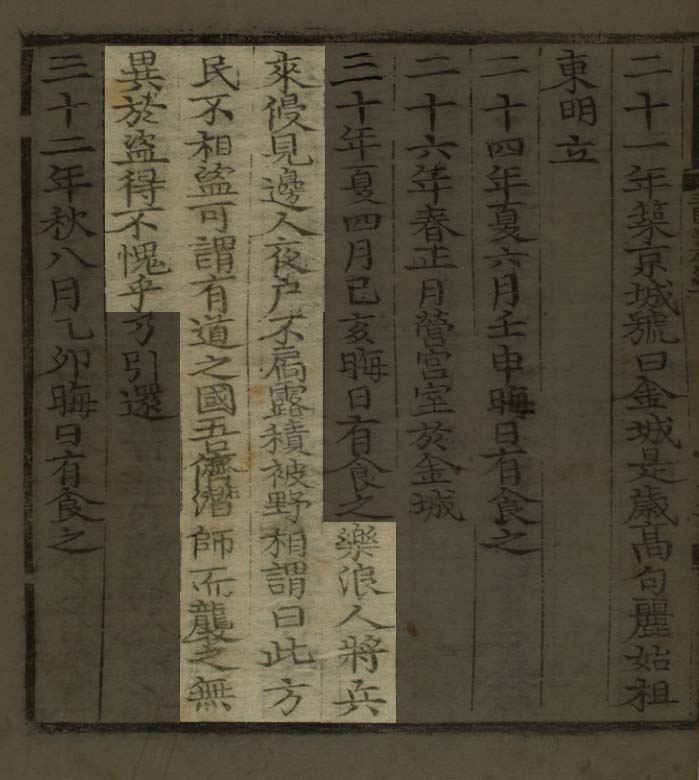 二十一年築京城號曰金城是歲髙句麗始祖
東明立
二十四年夏六月壬申晦日有食之
二十六年春正月營宮室於金城
三十年夏四月己亥晦日有食之樂浪人將兵
來侵見邊人夜户不扄露積被野相謂曰此方
民不相盗可謂有道之國吾儕潛師而襲之無
異於盗得不愧乎乃引還
三十二年秋八月乙卯晦日有食之